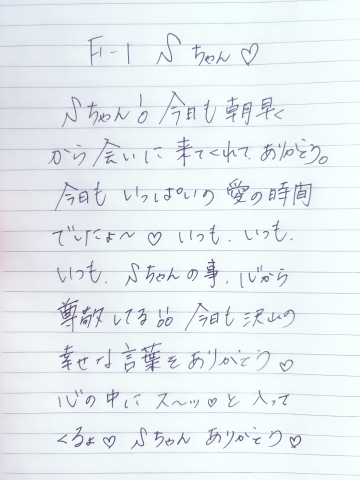 F-1 Sちゃん♡
Sちゃん!! 今日も朝早く
から会いに来てくれて、ありがとう。
今日もいっぱいの愛の時間
でしたよ〜♡ いつも、いつも、
いつも、Sちゃんの事、心から
尊敬してる!! 今日も沢山の
幸せな言葉をありがとう♡
心の中にス〜ッ♡と入って
くるよ♡ Sちゃんありがとう♡